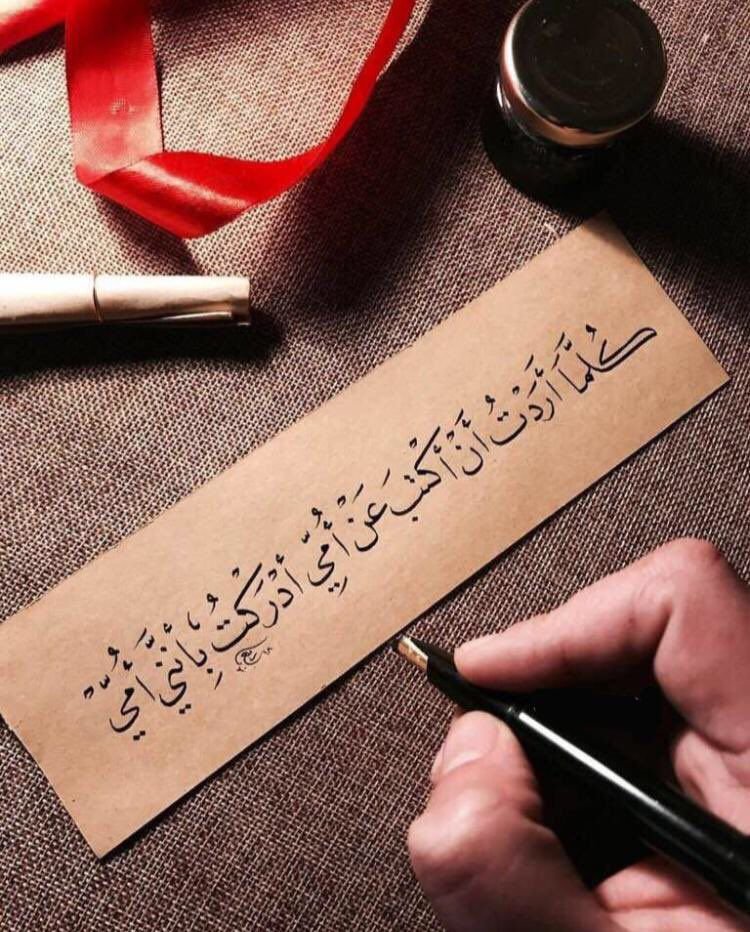 كُلَّمَا أَرَدْتُ أَنْ أَكْتُبَ عَنْ أُمِّي أَدْرَكْتُ بِأَنَّنِي أُمِّيّ